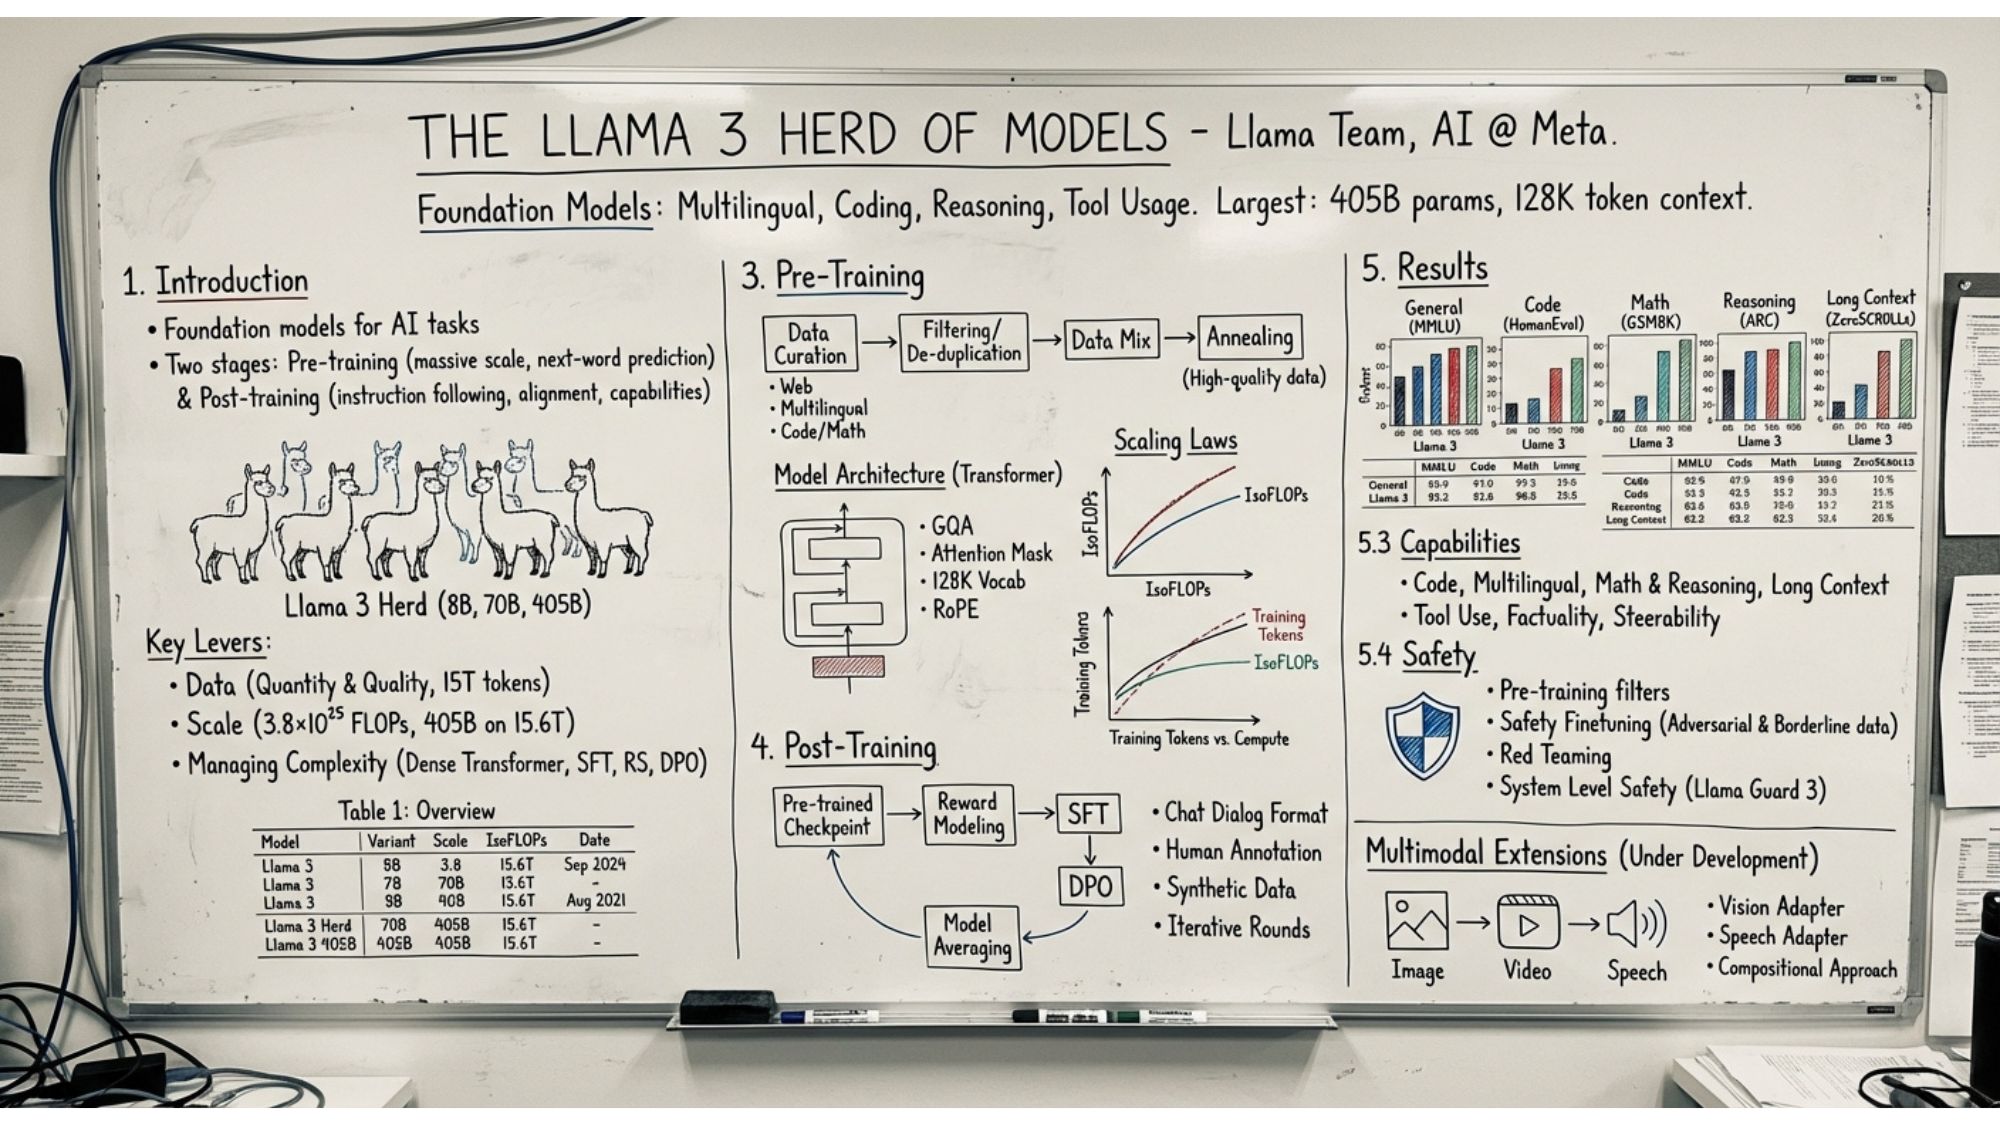 THE LLAMA 3 HERD OF MODELS - Llama Team, AI @ Meta.
Foundation Models: Multilingual, Coding, Reasoning, Tool Usage. Largest: 405B params, 128K token context.
1. Introduction
• Foundation models for AI tasks
• Two stages: Pre-training (massive scale, next-word prediction)
& Post-training (instruction following, alignment, capabilities)
Llama 3 Herd (8B, 70B, 405B)
Key Levers:
• Data (Quantity & Quality, 15T tokens)
• Scale (3.8×10²⁵ FLOPs, 405B on 15.6T)
• Managing Complexity (Dense Transformer, SFT, RS, DPO)
Table 1: Overview
Model Variant Scale IseFLOPs Date
Llama 3 3.8 15.6T Sep 2024
Llama 3 70B -
Llama 3 15.6T Aug 2021
Llama 3 Herd 70B 405B 15.6T -
Llama 3 405B 15.6T -
3. Pre-Training
Data Curation
Filtering/ De-duplication
Data Mix
Annealing
(High-quality data)
• Web
• Multilingual
• Code/Math
Model Architecture (Transformer)
• GQA
• Attention Mask
• 128K Vocab
• RoPE
Scaling Laws
IsoFLOPs
IsoFLOPs
IsoFLOPs
Training
Tokens
IsoFLOPs
Training
Training Tokens vs. Compute
4. Post-Training
Pre-trained Checkpoint
Reward Modeling
SFT
DPO
Model Averaging
• Chat Dialog Format
• Human Annotation
• Synthetic Data
• Iterative Rounds
5. Results
General
(MMLU)
Code
(HumanEval)
Math
(GSM8K)
Reasoning
(ARC)
Long Context
Llama 3
Llama 3
Llama 3
Llama 3
Llama 3
MMLU Code Math
General
Llama 3
MMLU Cods Math
Cods
Long Context
5.3 Capabilities
• Code, Multilingual, Math & Reasoning, Long Context
• Tool Use, Factuality, Steerability
5.4 Safety
• Pre-training filters
• Safety Finetuning (Adversarial & Borderline data)
• Red Teaming
• System Level Safety (Llama Guard 3)
Multimodal Extensions (Under Development)
Image
Video
Speech
• Vision Adapter
• Speech Adapter
• Compositional Approach